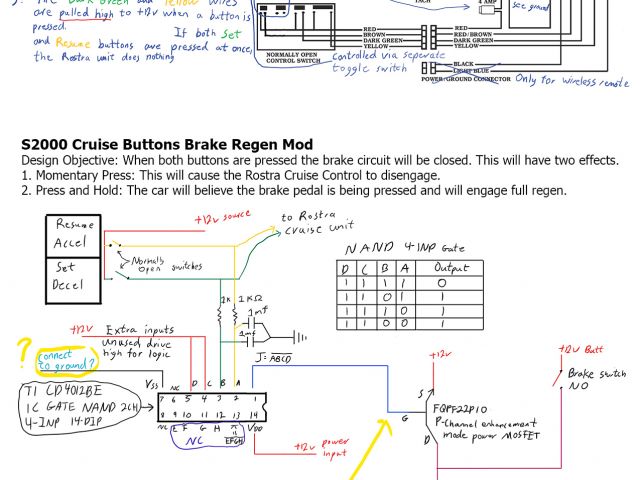 3. The Dark Green and Yellow wires
are pulled high to +12v when a button is
pressed. If both Set
and Resume buttons are pressed at once,
the Rostra unit does nothing
TACH
4 AMP
see ground
RED
BROWN
DARK GREEN
YELLOW
RED
RED/BROWN
DARK GREEN
YELLOW
NORMALLY OPEN
CONTROL SWITCH
controlled via seperate
toggle switch
BLACK
LIGHT BLUE
POWER/GROUND CONNECTOR
Only for wireless remote
S2000 Cruise Buttons Brake Regen Mod
Design Objective: When both buttons are pressed the brake circuit will be closed. This will have two effects.
1. Momentary Press: This will cause the Rostra Cruise Control to disengage.
2. Press and Hold: The car will believe the brake pedal is being pressed and will engage full regen.
Resume
Accel
Set
Decel
+12v source
to Rostra
cruise unit
Normally
Open switches
NAND 4-INP Gate
D C B A Output
1 1 1 1 0
1 1 0 1 1
1 1 1 0 1
1 1 0 0 1
1K 1KΩ
1mf
1mf
+12v Extra inputs
Unused drive
high for logic
? connect
to ground?
J = ABCD
TI CD4012BE
IC GATE NAND 2CH
4-INP 14-DIP
VSS NC D C B A J
7 6 5 4 3 2 1
8 9 10 11 12 13 14
NC E F G H VDD
EFGH
NC
+12v power
input
+12v
S
G
D
FQPF22P10
P-Channel enhancement
mode power MOSFET
+12v Batt
Brake switch
NO